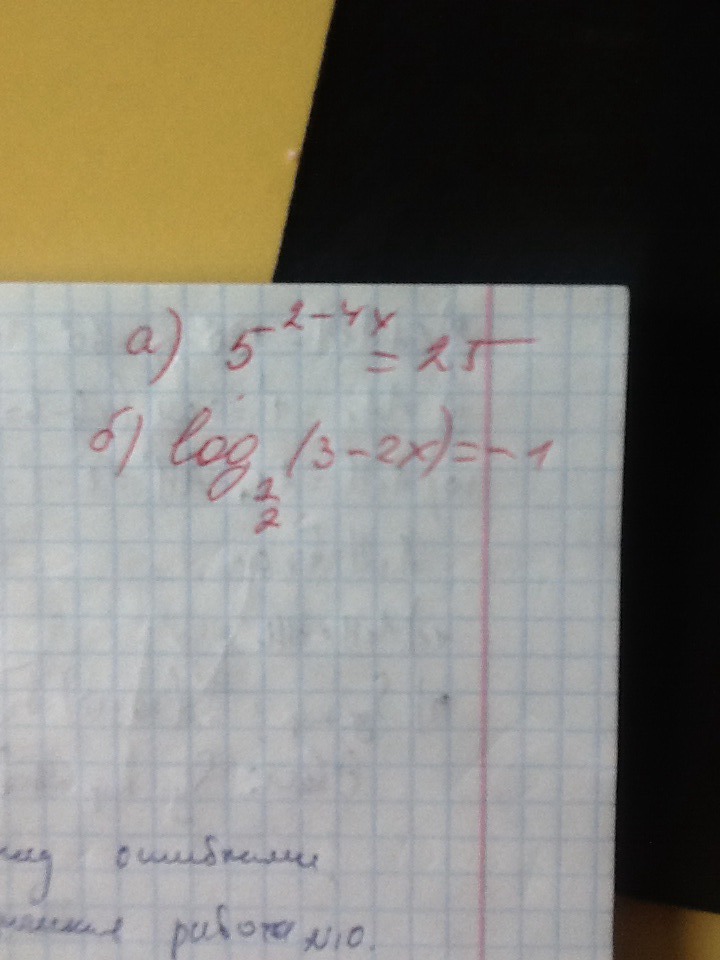 а) 5^{2-4x} = 25
б) log_{\frac{1}{2}} (3-2x) = -1
ошибками
работа №10.